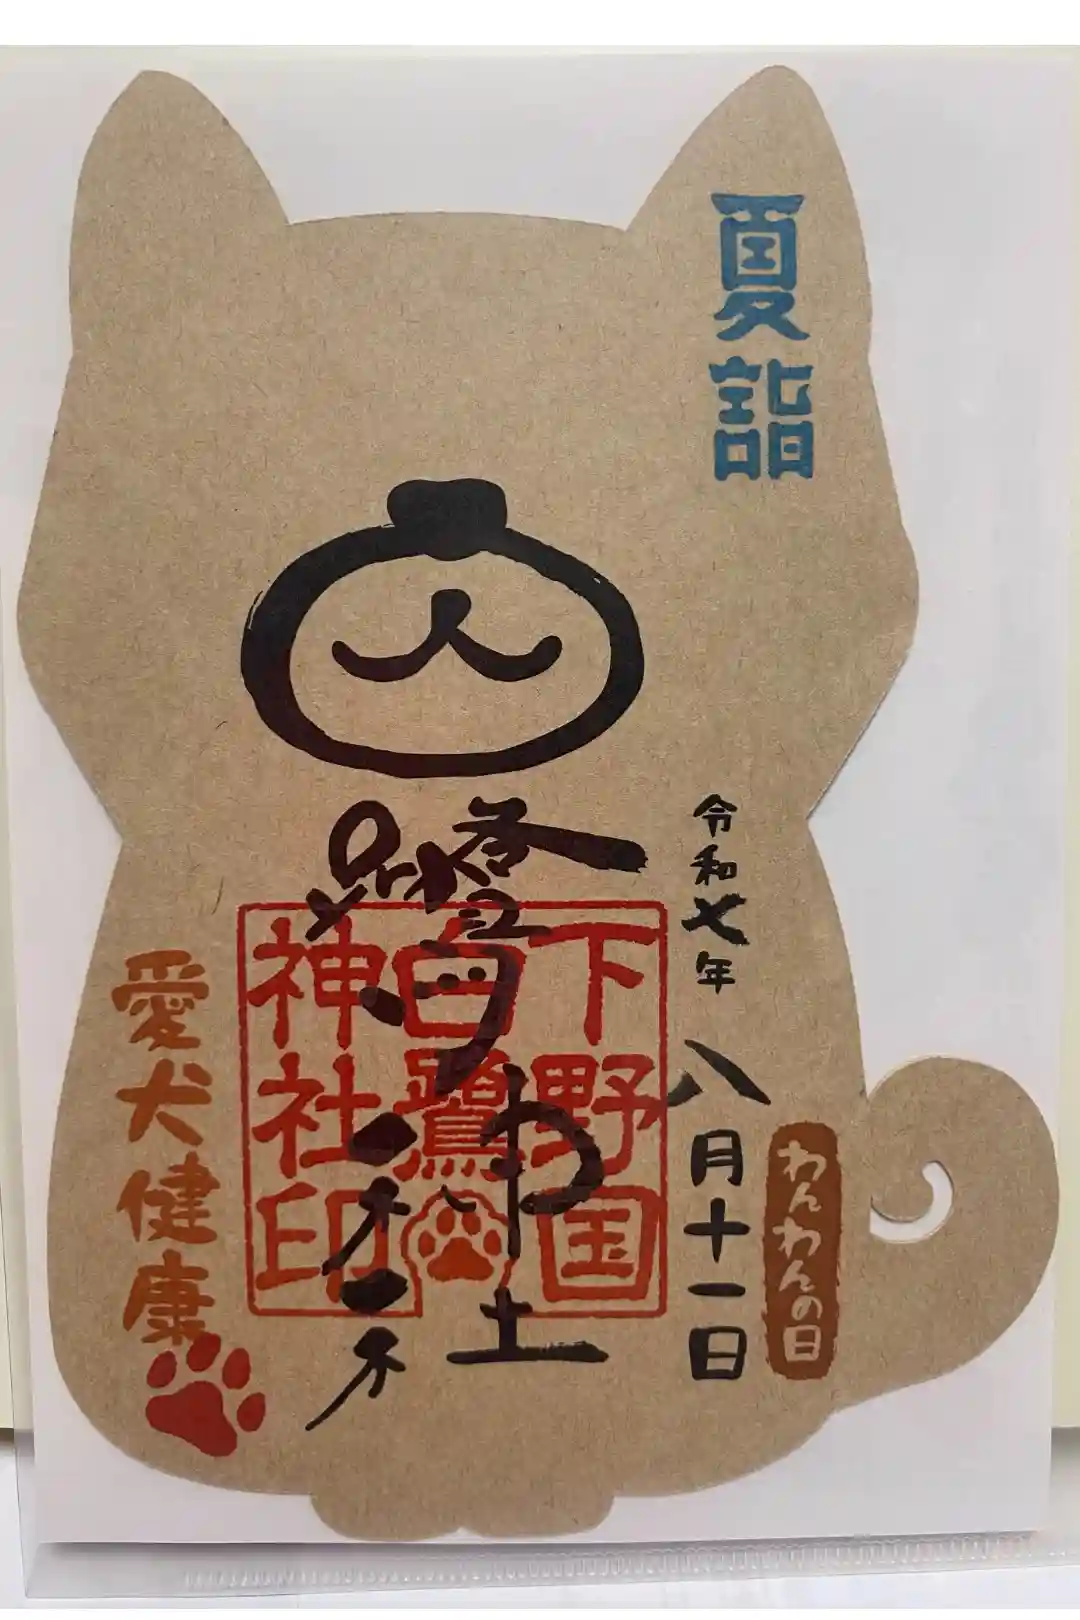 夏詣
令和七年 八月十一日
わんわんの日
下野国
白鷺
神社印
愛犬健康